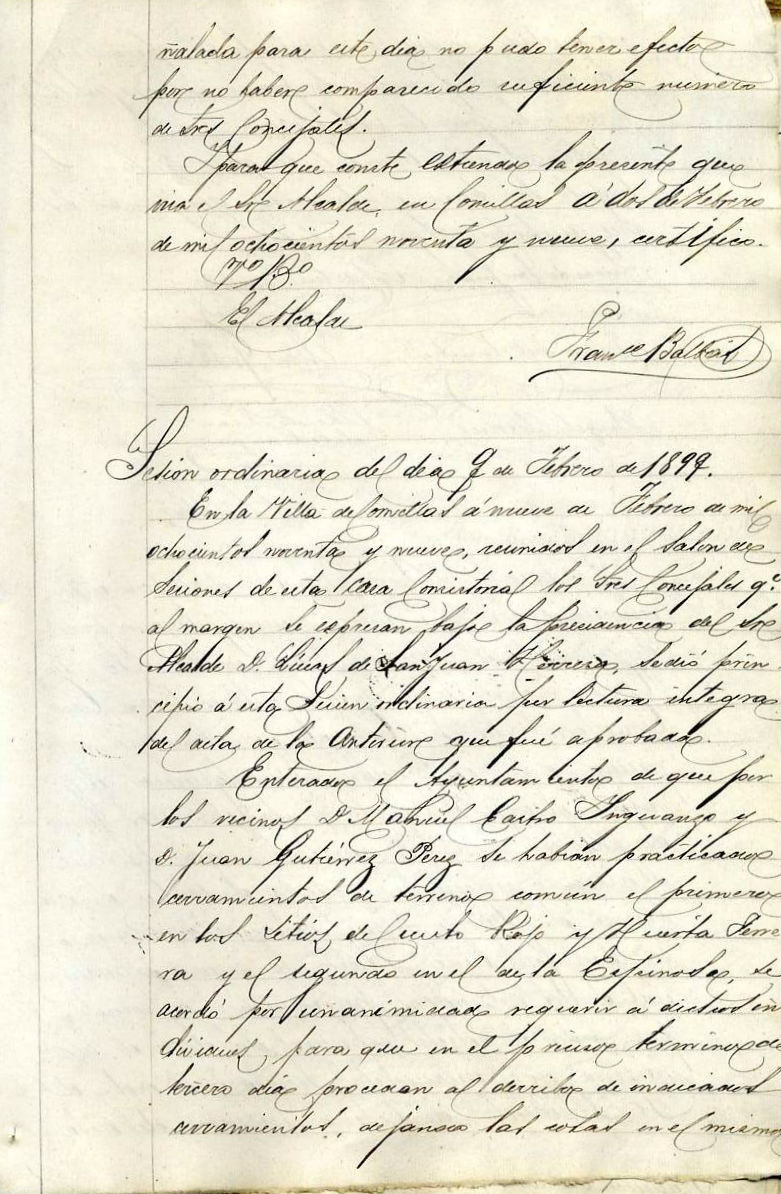 ñalada para este dia no pudo tener efecto
por no haber comparecido suficiente número
de Sres Concejales.
Y para que conste extiendo la presente que
visa el Sr Alcalde, en Comillas á dos de Febrero
de mil ochocientos noventa y nueve, certifico.
Vº Bº
El Alcalde
Franco Balbás
Sesion ordinaria del dia 9 de Febrero de 1899.
En la Villa de Comillas á nueve de Febrero de mil
ochocientos noventa y nueve, reunidos en el Salon de
Sesiones de esta Casa Consistorial los Sres Concejales q.e
al margen se expresan bajo la presidencia del Sr
Alcalde D. Lucas de San Juan Herrera, se dió prin
cipio á esta Sesion ordinaria por lectura integra
del acta de la anterior que fué aprobada.
Enterado el Ayuntamiento de que por
los vecinos D Manuel Castro Inguanzo y
D. Juan Gutiérrez Perez se habian practicado
cerramientos de terreno común el primero
en los sitios de Cueto Rojo y Huerta Ferre
ra y el segundo en el de la Espinosa, se
acordó por unanimidad requerir á dichos in
dividuos, para que en el preciso termino de
tercero dia procedan al derribo de indicados
cerramientos, dejando las cosas en el mismo